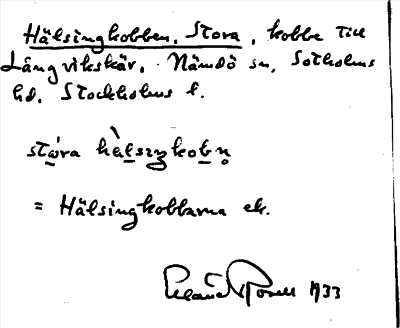 Hälsingkobben, Stora, kobbe till
Långvikskär, Nämdö sn, Sotholms
hd, Stockholms l.
sto̱ra hàḻsıŋkoḇn̥
= Hälsingkobbarna ek.
1933